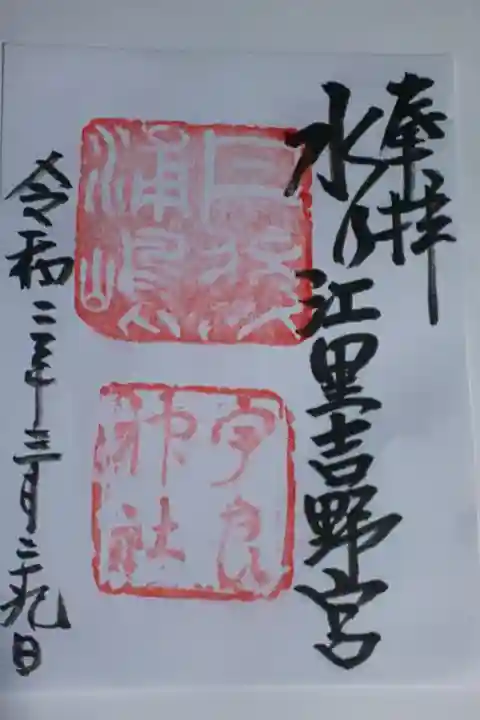 奉拝
水乃江里吉野宮
宇良
神社
令和二年三月二十九日